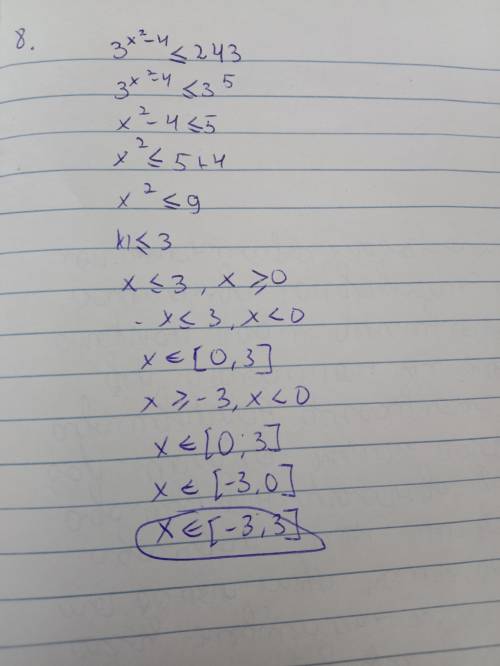 8.
3^{x^2-4} ≤ 243
3^{x^2-4} ≤ 3^5
x^2 - 4 ≤ 5
x^2 ≤ 5+4
x^2 ≤ 9
|x| ≤ 3
x ≤ 3, x ≥ 0
- x ≤ 3, x < 0
x ∈ [0, 3]
x ≥ -3, x < 0
x ∈ [0; 3]
x ∈ [-3, 0]
x ∈ [-3; 3]